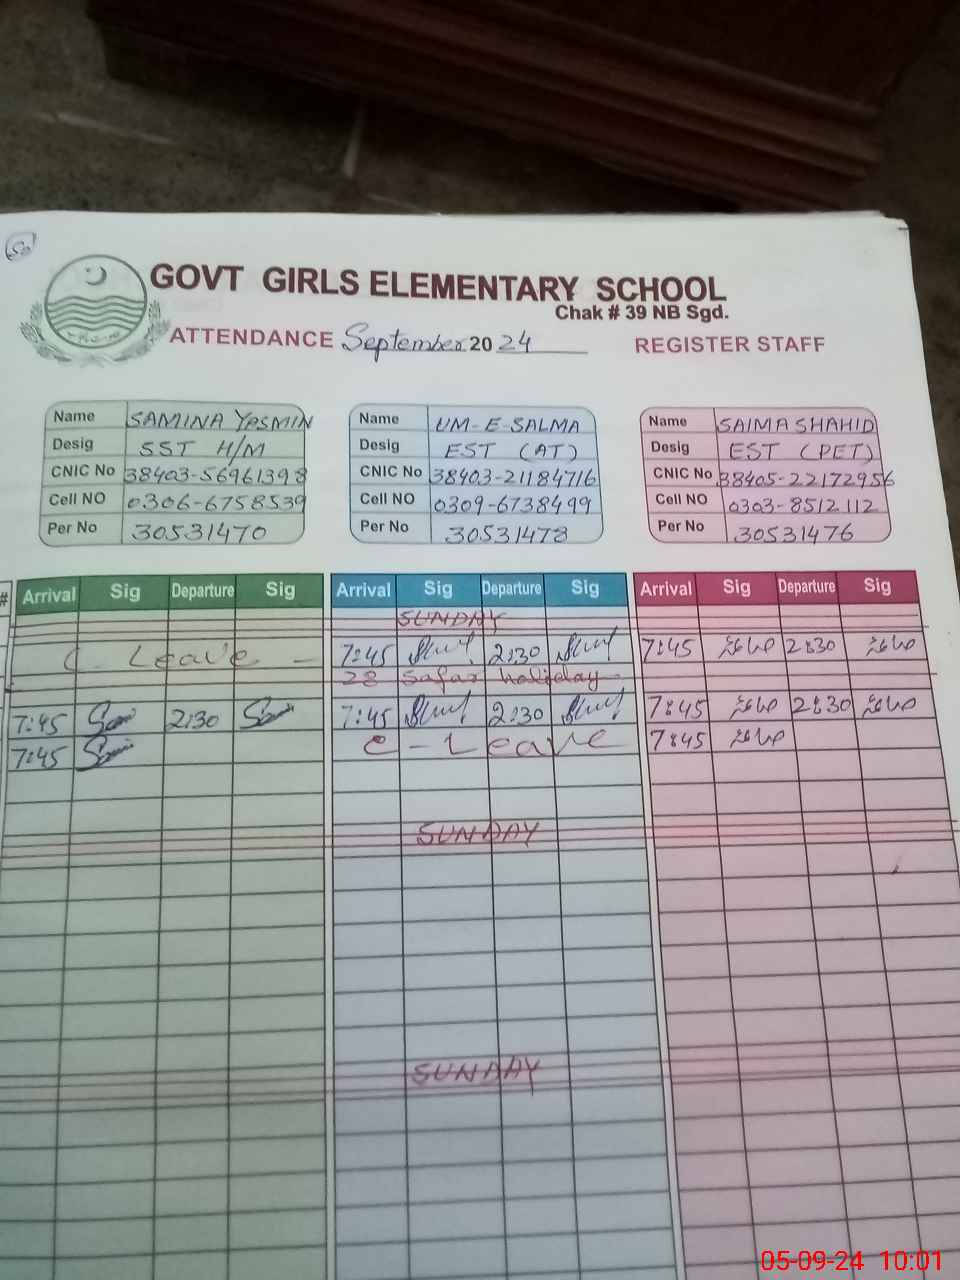 GOVT GIRLS ELEMENTARY SCHOOL
Chak # 39 NB Sgd.
ATTENDANCE September 2024 REGISTER STAFF
Name SAMINA YASMIN Name UM-E-SALMA Name SAIMA SHAHID
Desig SST H/M Desig EST (AT) Desig EST (PET)
CNIC No 38403-56961398 CNIC No 38403-21184716 CNIC No 38405-22172956
Cell NO 0306-6758539 Cell NO 0309-6738499 Cell NO 0303-8512112
Per No 30531470 Per No 30531478 Per No 30531476
# Arrival Sig Departure Sig Arrival Sig Departure Sig Arrival Sig Departure Sig
SUNDAY
C - Leave - 7:45 2:30 7:45 2:30
28 Safar holiday
7:45 2:30 7:45 2:30 7:45 2:30
7:45 C - Leave 7:45
SUNDAY
SUNDAY
05-09-24 10:01